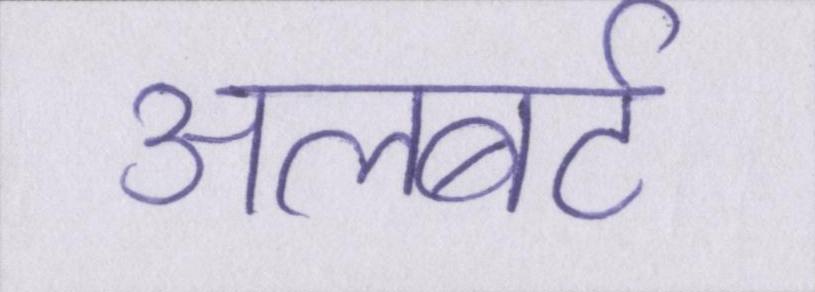 अलबर्ट